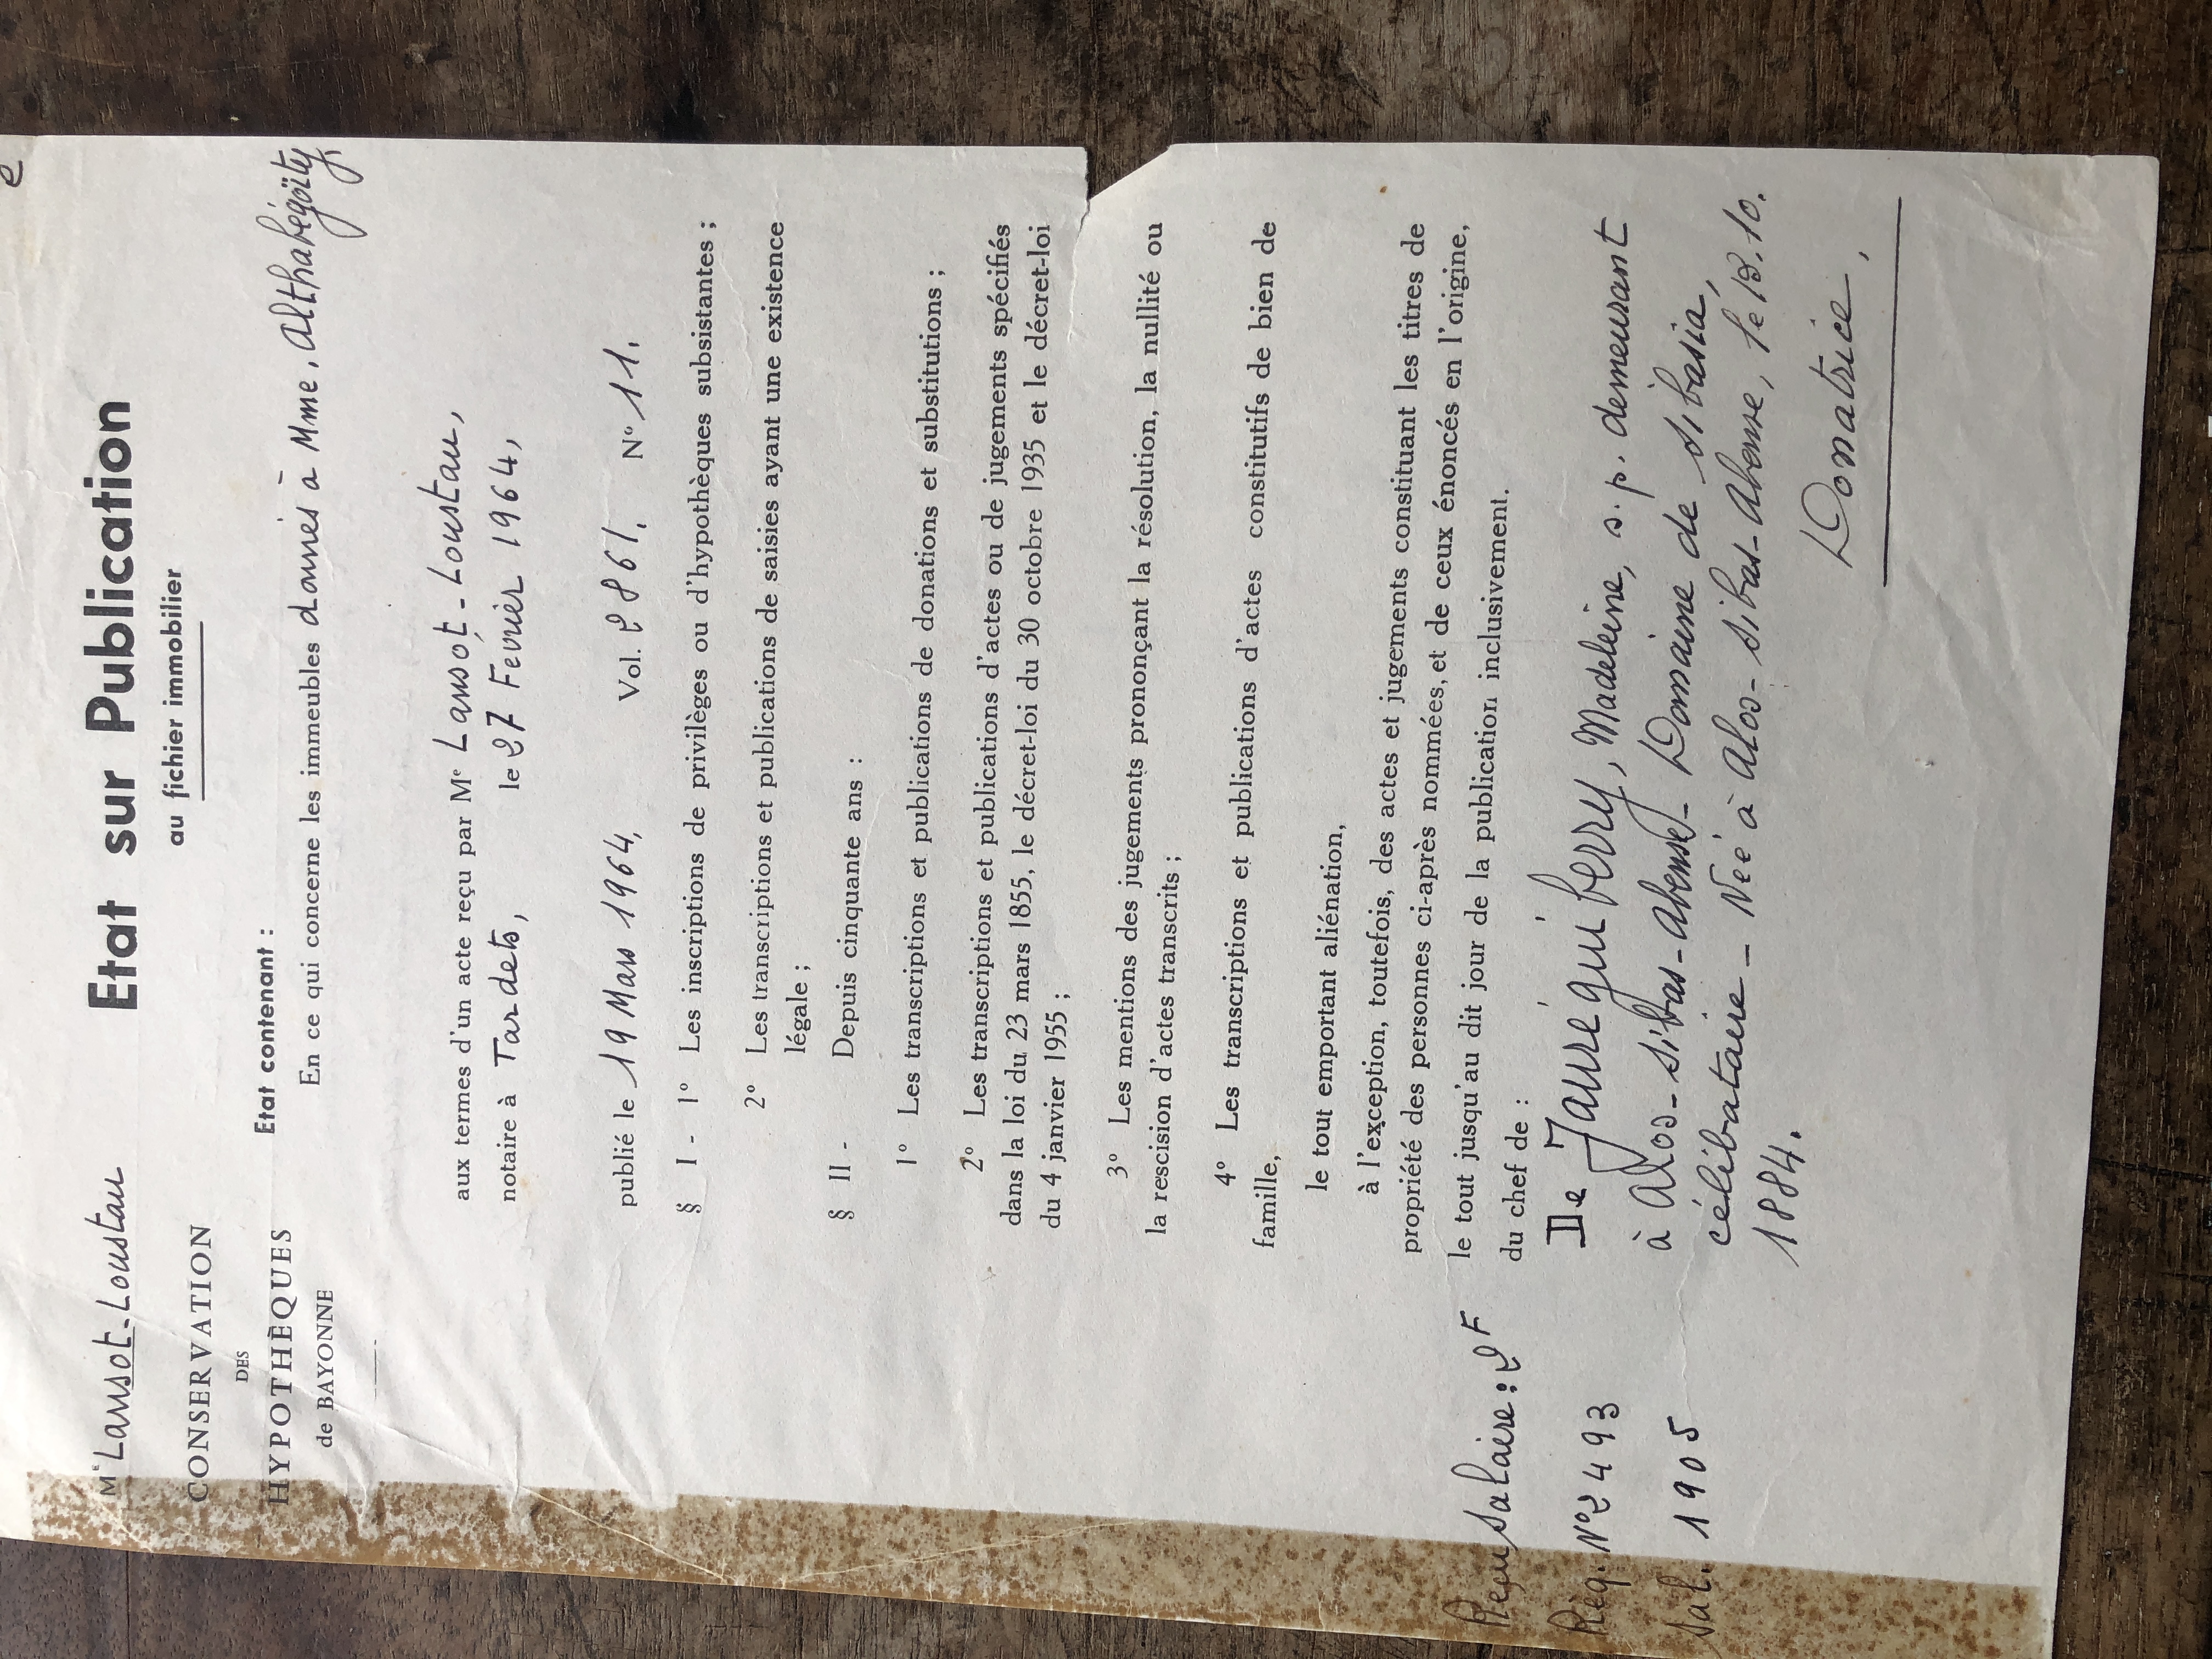 e
Me Lansot-Loustau
Etat sur Publication
au fichier immobilier
CONSERVATION
DES
HYPOTHÈQUES
de BAYONNE
Etat contenant :
En ce qui concerne les immeubles donnés à Mme. Althabégoïty
aux termes d'un acte reçu par Me Lansot-Loustau,
notaire à Tardets, le 27 Fevrier 1964,
publié le 19 Mars 1964, Vol. 2861. N° 11.
§ I - 1° Les inscriptions de privilèges ou d'hypothèques subsistantes ;
2° Les transcriptions et publications de saisies ayant une existence
légale ;
§ II - Depuis cinquante ans :
1° Les transcriptions et publications de donations et substitutions ;
2° Les transcriptions et publications d'actes ou de jugements spécifiés
dans la loi du 23 mars 1855, le décret-loi du 30 octobre 1935 et le décret-loi
du 4 janvier 1955 ;
3° Les mentions des jugements prononçant la résolution, la nullité ou
la rescision d'actes transcrits ;
4° Les transcriptions et publications d'actes constitutifs de bien de
famille,
le tout emportant aliénation,
à l'exception, toutefois, des actes et jugements constituant les titres de
propriété des personnes ci-après nommées, et de ceux énoncés en l'origine,
le tout jusqu'au dit jour de la publication inclusivement.
du chef de :
De Jauréguiberry, Madeleine, s. p. demeurant
à Alos-Sibas-Abense - Domaine de Sibasia,
célibataire - Née à Alos-Sibas-Abense, le 18.10.
1884.
Donatrice.
Reçu Salaire : 2 F
Rég. N° 2493
Sal. 1905